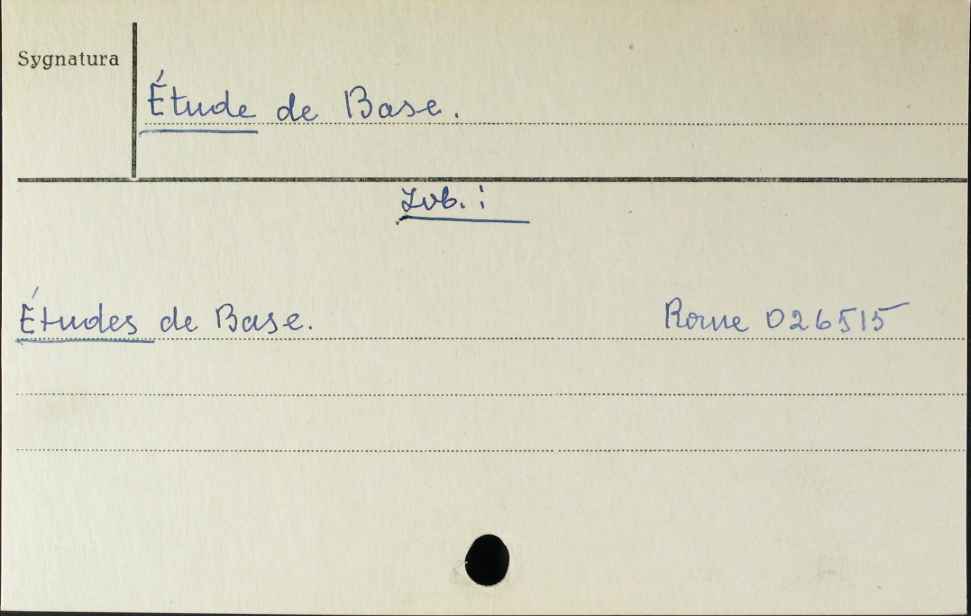 Sygnatura
Étude de Base.
Zob.:
Études de Base. Rome D26515